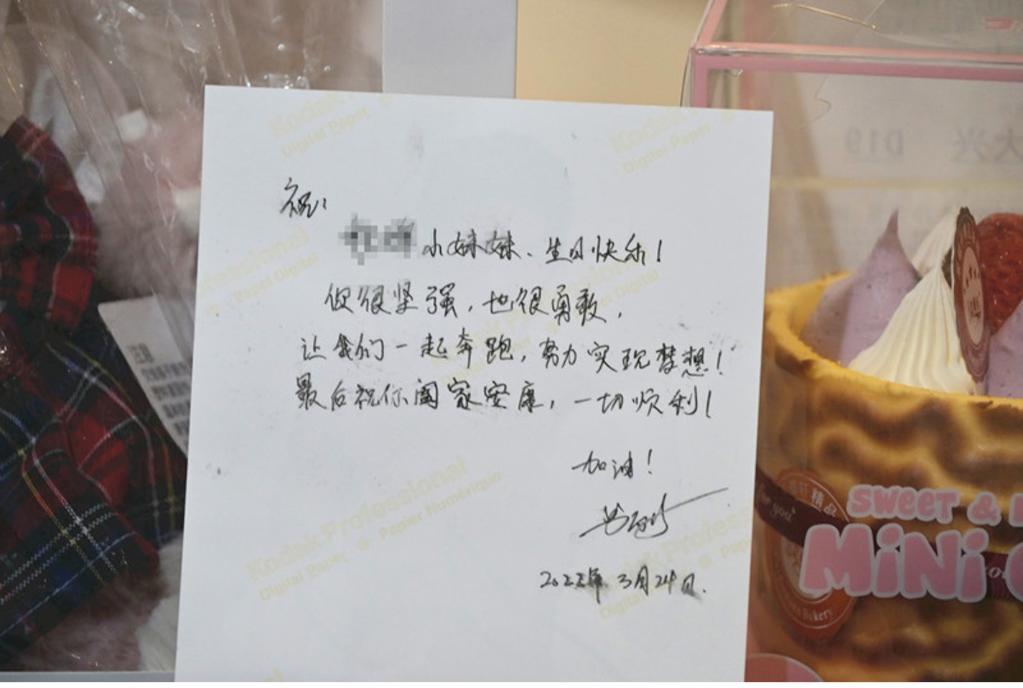 祝:
小妹妹、生日快乐!
但很坚强,也很勇敢,
让我们一起奔跑,努力实现梦想!
最后祝你阖家安康,一切顺利!
加油!
2022年3月24日.
Kodak Professional
Digital Paper
Kodak Professional
Digital Paper Papier Numérique
D19
大兴
SWEET &
MiNi
for you
精品
Bakery